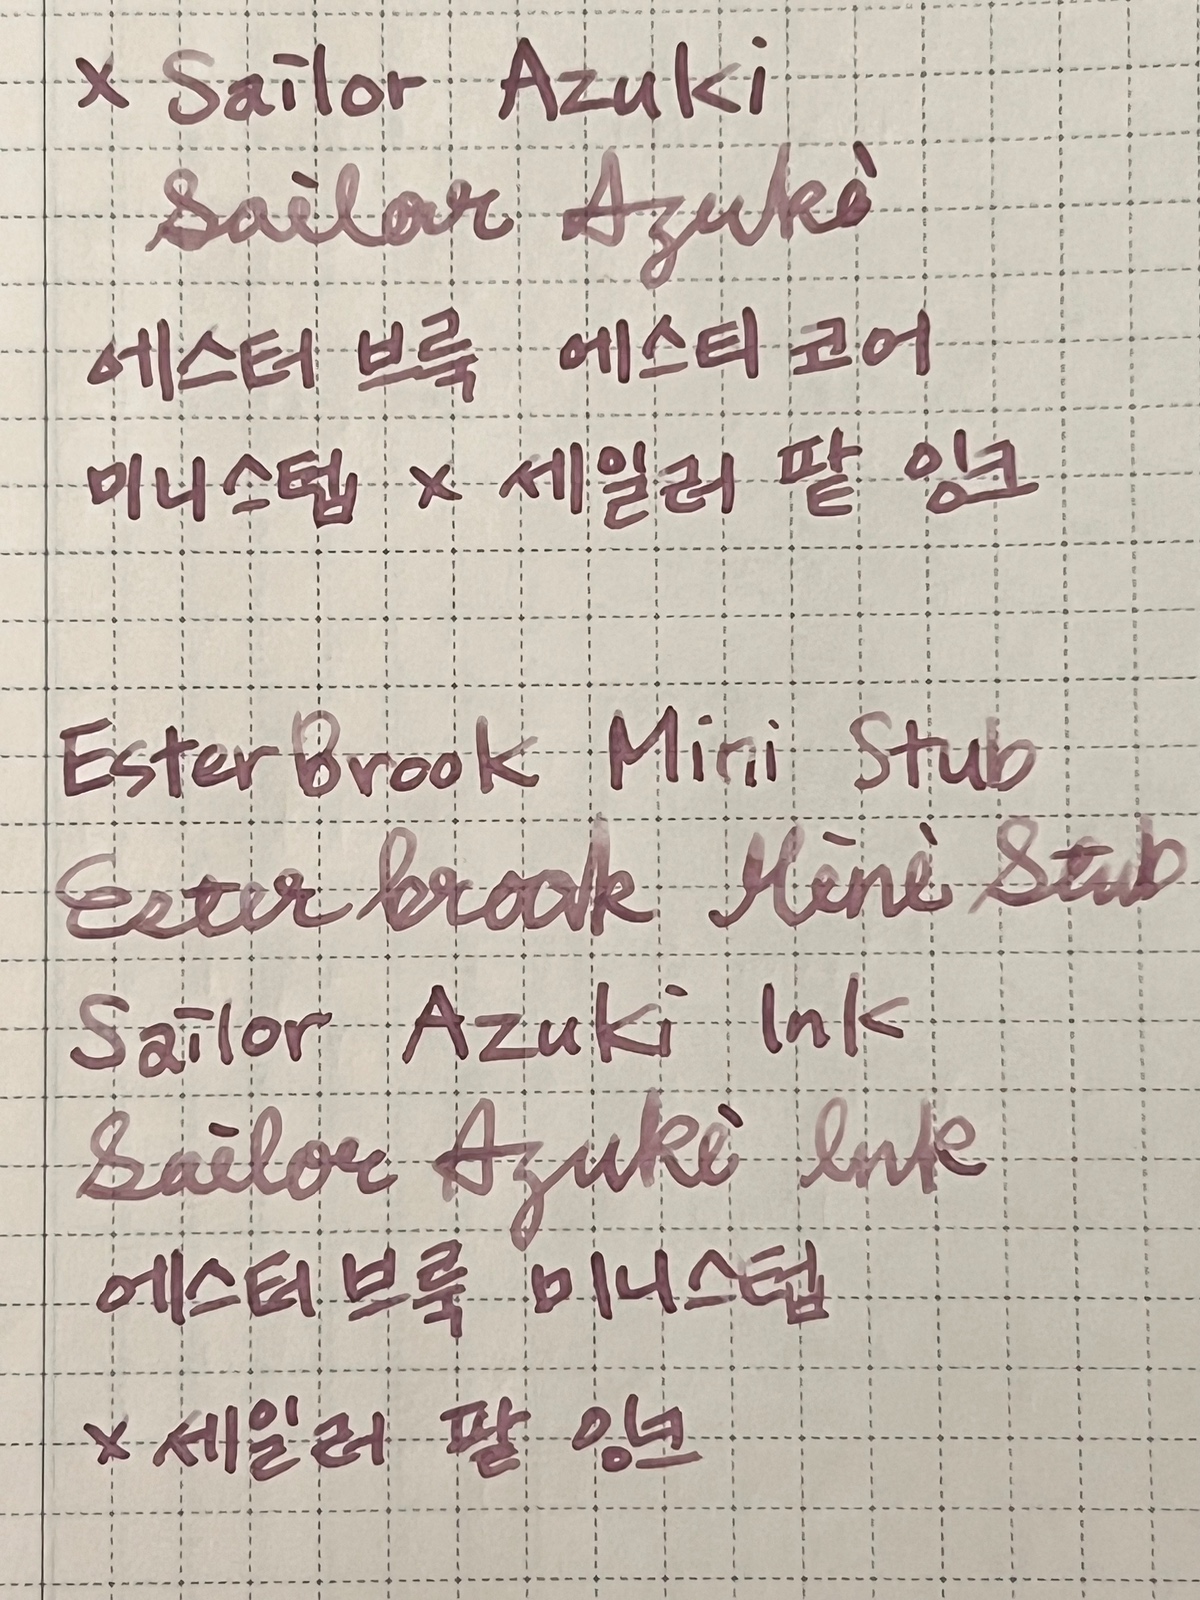 x Sailor Azuki
Sailor Azuki
에스터 브룩 에스티 코어
미니스텁 x 세일러 팥 잉크
EsterBrook Mini Stub
Esterbrook Mini Stub
Sailor Azuki Ink
Sailor Azuki Ink
에스터 브룩 미니스텁
x 세일러 팥 잉크